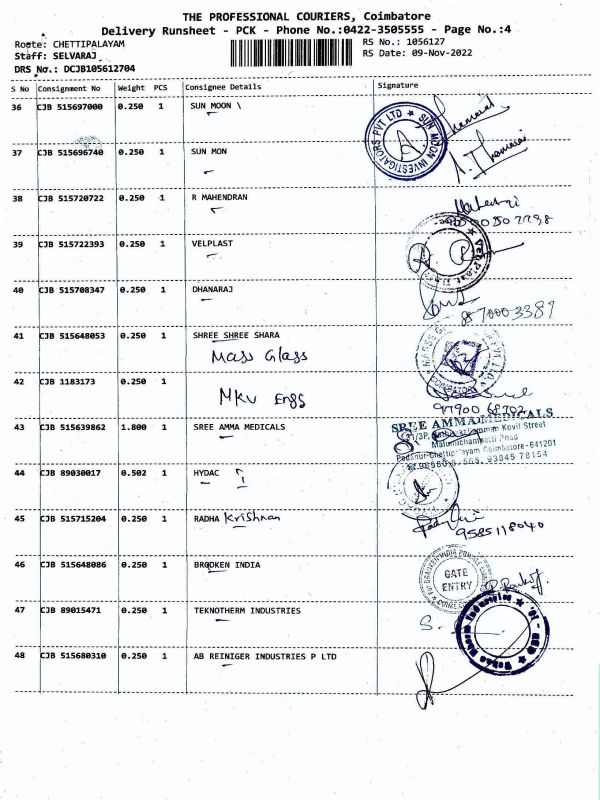 THE PROFESSIONAL COURIERS, Coimbatore
Delivery Runsheet - PCK - Phone No.:0422-3505555 - Page No.:4
Route: CHETTIPALAYAM RS No.: 1056127
Staff: SELVARAJ RS Date: 09-Nov-2022
DRS No.: DCJB105612704
S No Consignment No Weight PCS Consignee Details Signature
36 CJB 515697000 0.250 1 SUN MOON \
SUN MOON INVESTIGATORS PVT LTD
37 CJB 515696740 0.250 1 SUN MON
38 CJB 515720722 0.250 1 R MAHENDRAN
39 CJB 515722393 0.250 1 VELPLAST
40 CJB 515708347 0.250 1 DHANARAJ
41 CJB 515648053 0.250 1 SHREE SHREE SHARA
Mass Glass
42 CJB 1183173 0.250 1
MKV Engs
43 CJB 515639862 1.800 1 SREE AMMA MEDICALS
SREE AMMA MEDICALS
Kovil Street
Malumichampatti Post
Coimbatore-641201
93645 78154
44 CJB 89030017 0.502 1 HYDAC
45 CJB 515715204 0.250 1 RADHA Krishnan
9585118040
46 CJB 515648086 0.250 1 BROOKEN INDIA
GATE
ENTRY
47 CJB 89015471 0.250 1 TEKNOTHERM INDUSTRIES
48 CJB 515680310 0.250 1 AB REINIGER INDUSTRIES P LTD